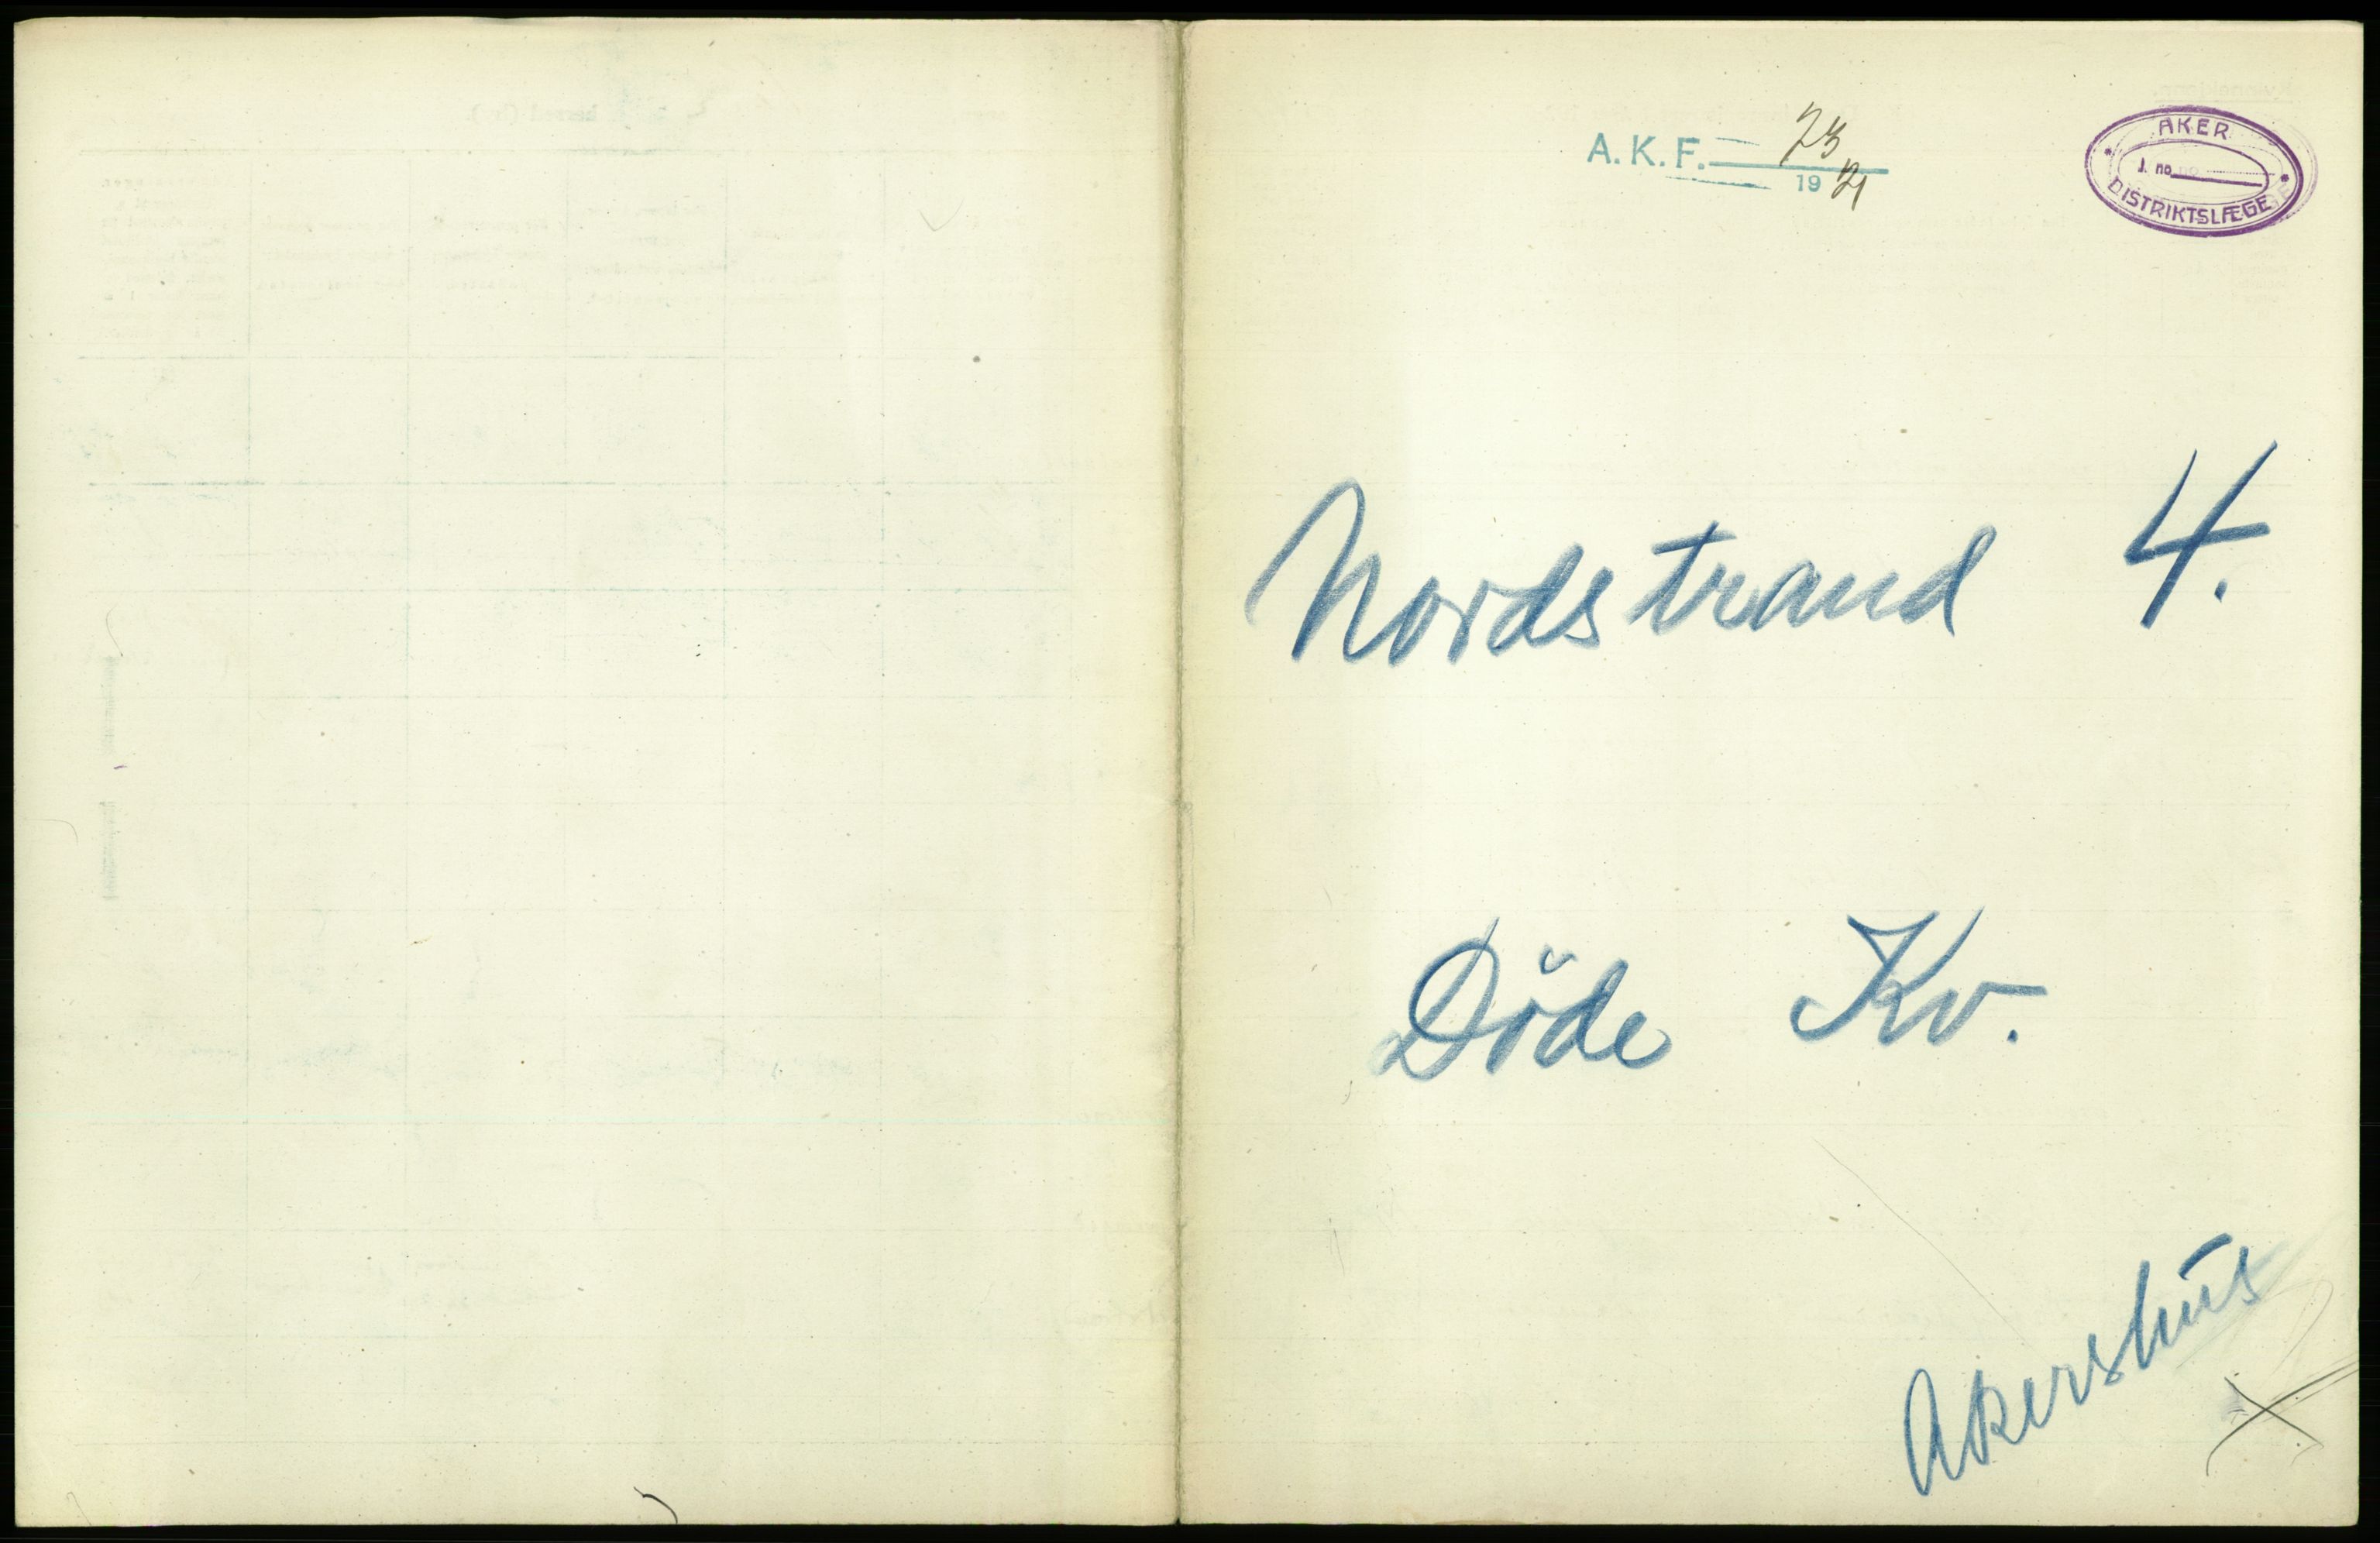 A. K. F. 23
19 21
AKER
J. no
DISTRIKTSLÆGE
Nordstrand 4.
Döde Kv.
Akershus